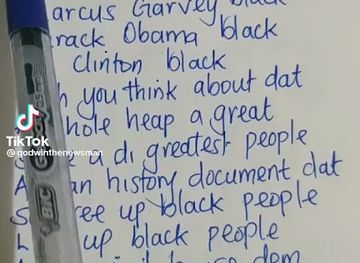 arcus Garvey black
rack Obama black
Clinton black
h you think about dat
hole heap a great
a di greatest people
an history document dat
ee up black people
up black people
TikTok
@godwinthenewsman
BIC